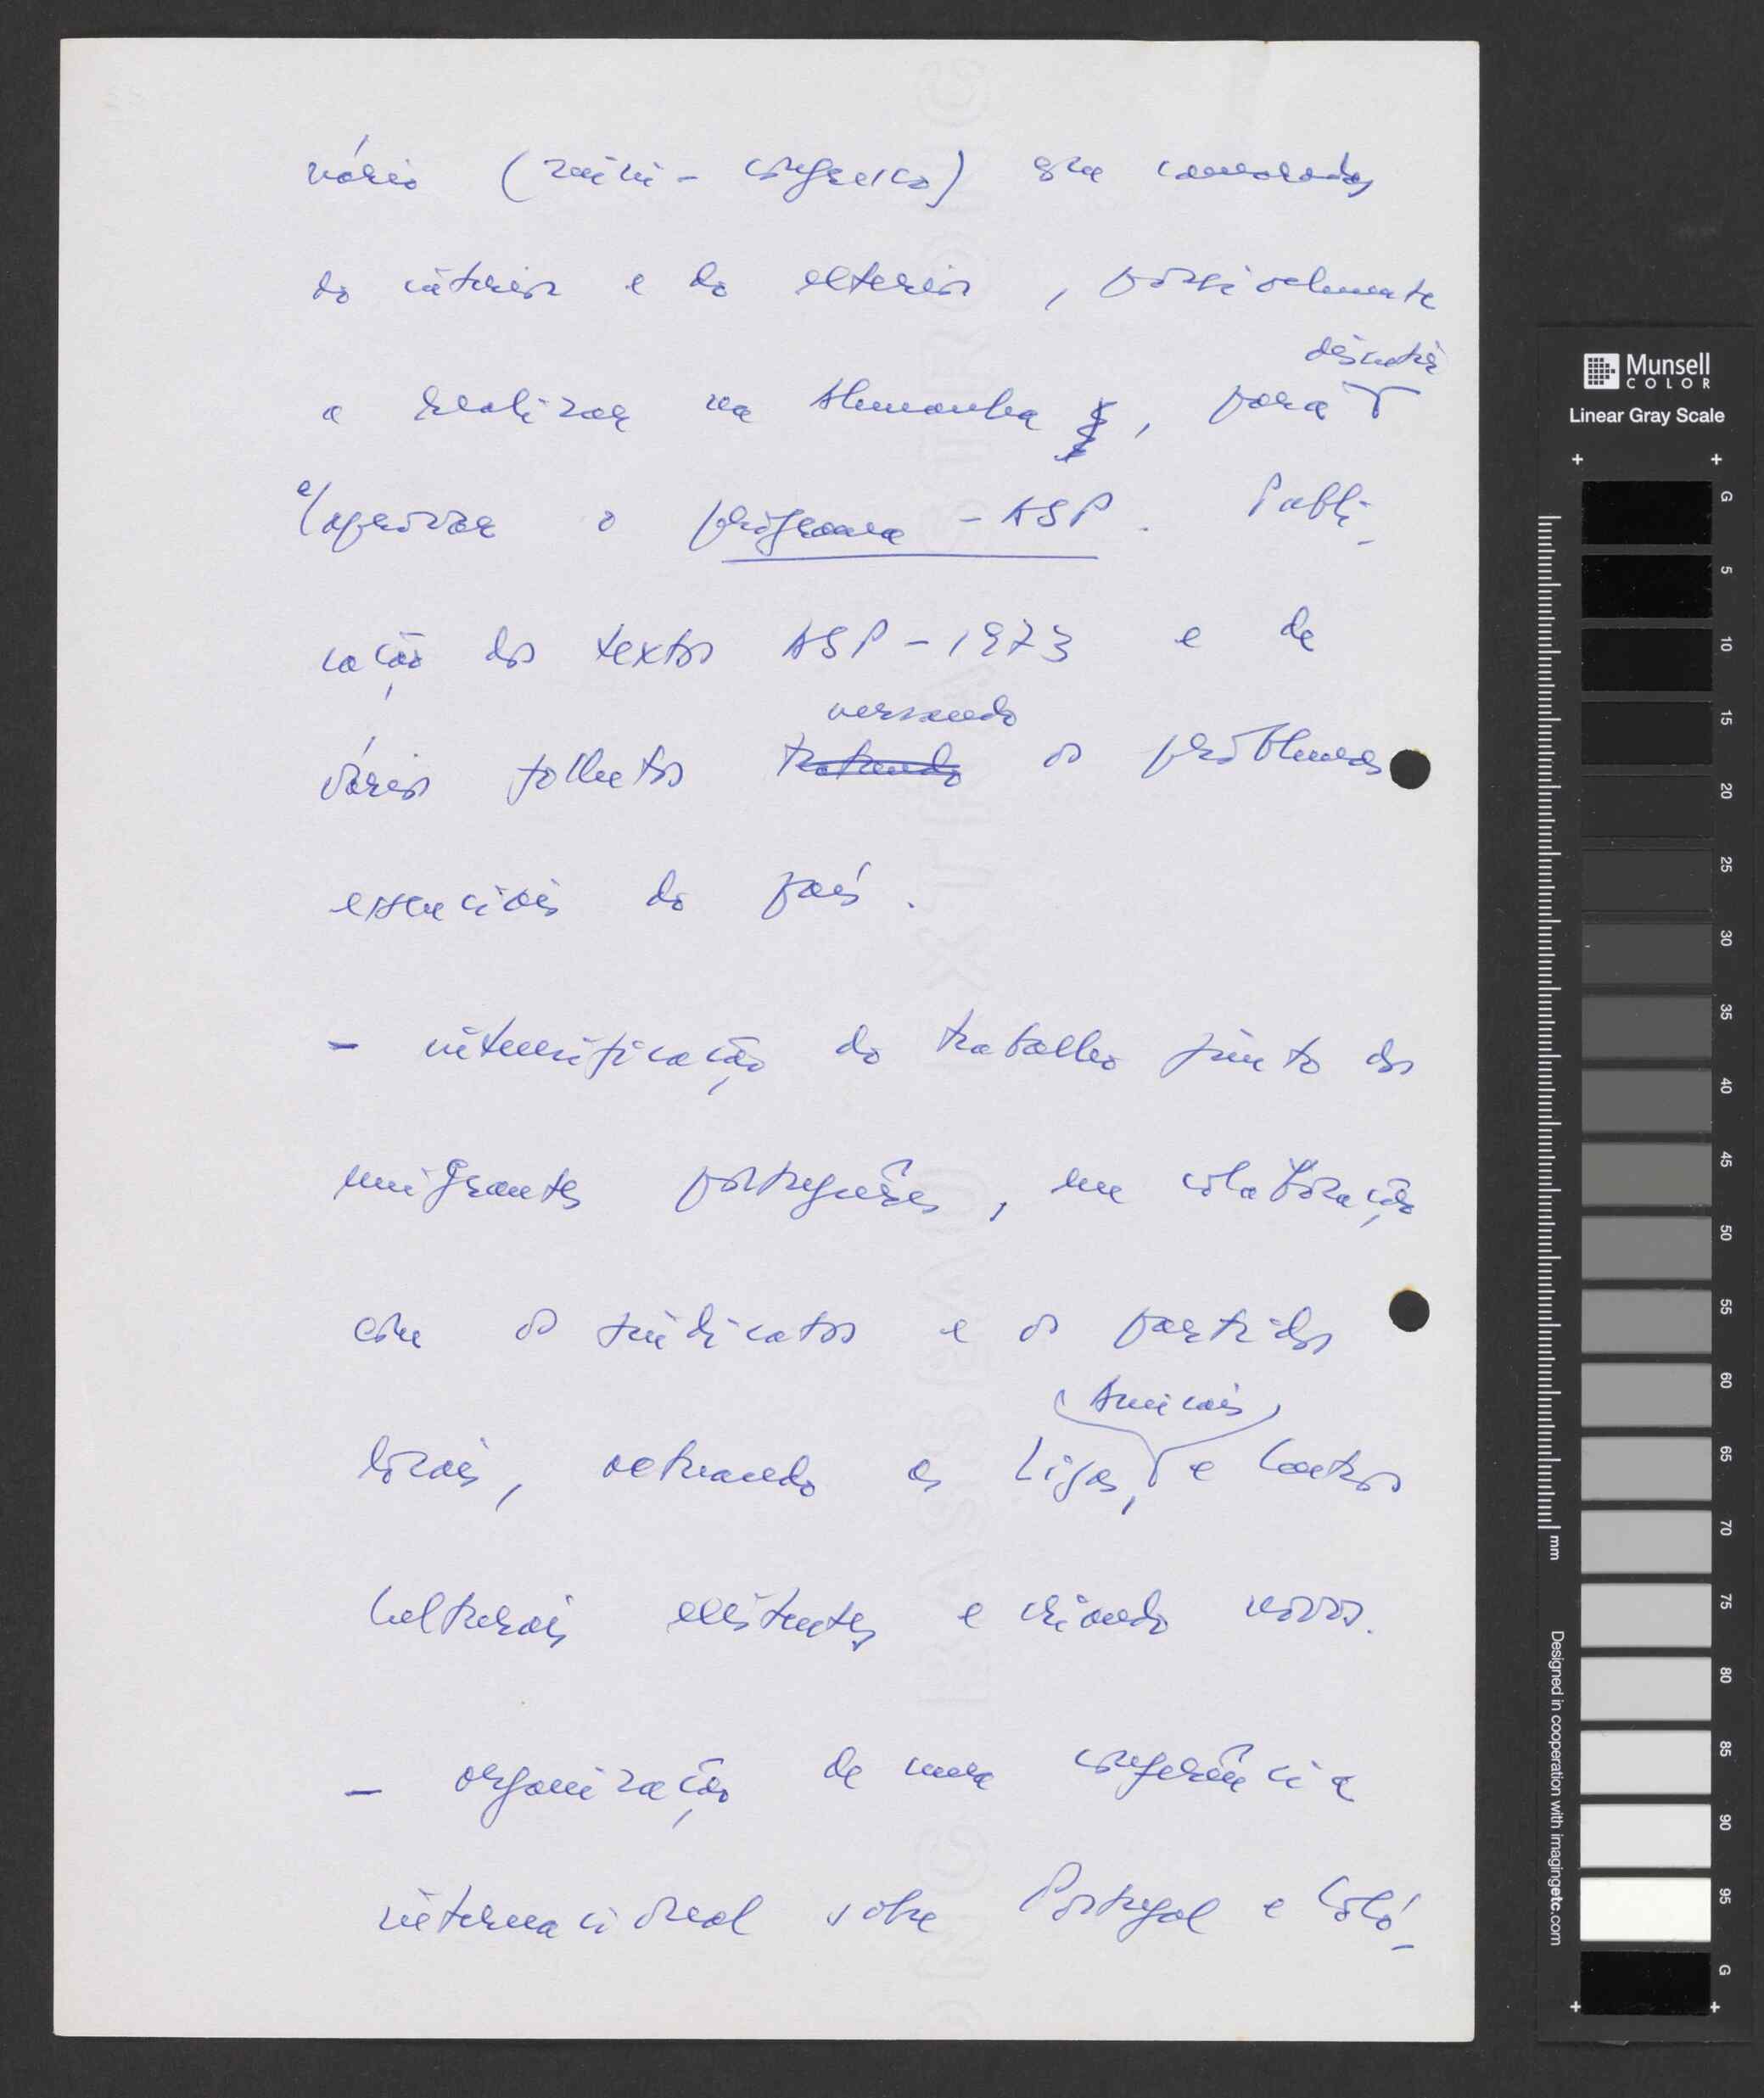 nário (mini-congresso) com camaradas
do interior e do exterior, possivelmente
discutir
a realizar na Alemanha, para
e/aprovar o programa - ASP. Publi-
cação dos textos ASP - 1973 e de
versando
vários folhetos tratando os problemas
essenciais do país.
- intensificação do trabalho junto dos
emigrantes portugueses, em colaboração
com os sindicatos e os partidos
Amicais
locais, actuando as Ligas, e Centros
Culturais existentes e criando novos.
- organização de uma conferência
internacional sobre Portugal e Coló-
Munsell
COLOR
Linear Gray Scale
G
5
10
15
20
25
30
35
40
45
50
55
60
65
70
75
80
85
90
95
G
mm
Designed in cooperation with imagingetc.com